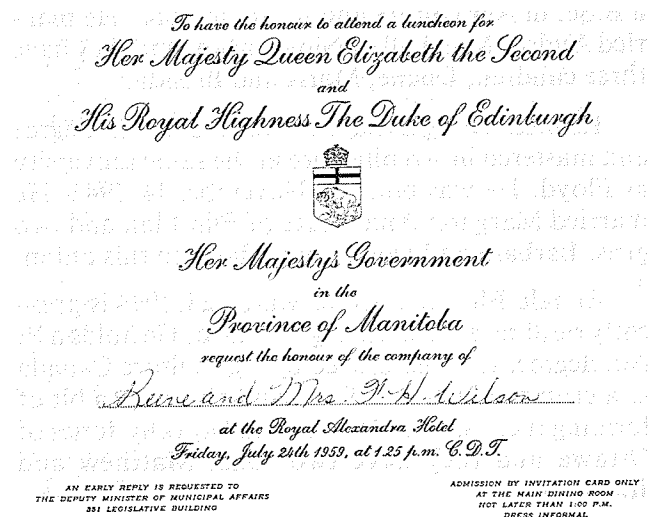 To have the honour to attend a luncheon for
Her Majesty Queen Elizabeth the Second
and
His Royal Highness The Duke of Edinburgh
Her Majesty's Government
in the
Province of Manitoba
request the honour of the company of
Reeve and Mrs F. H. Wilson
at the Royal Alexandra Hotel
Friday, July 24th 1959, at 1.25 p.m. C.D.T.
AN EARLY REPLY IS REQUESTED TO
THE DEPUTY MINISTER OF MUNICIPAL AFFAIRS
351 LEGISLATIVE BUILDING
ADMISSION BY INVITATION CARD ONLY
AT THE MAIN DINING ROOM
NOT LATER THAN 1:00 P.M.
DRESS INFORMAL